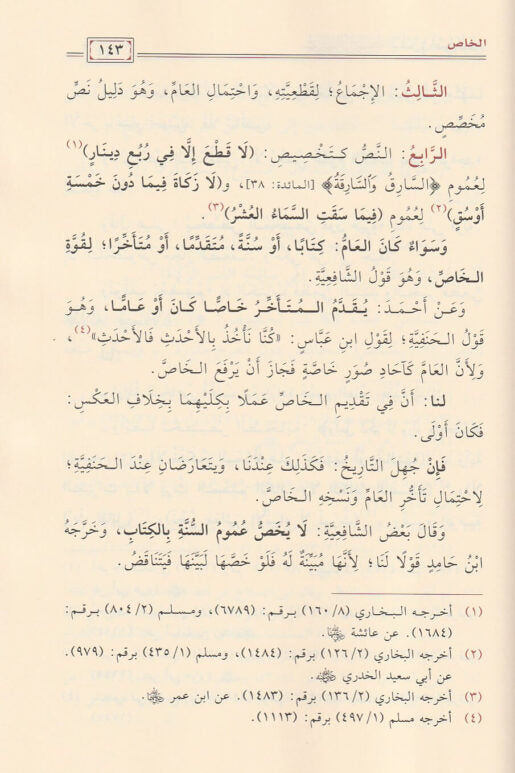 الخاص
١٤٣
الثَّالِثُ: الإِجْمَاعُ؛ لِقَطْعِيَّتِهِ، وَاحْتِمَالِ العَامِّ، وَهُوَ دَلِيلُ نَصٍّ
مُخَصِّصٍ.
الرَّابِعُ: النَّصُّ كَتَخْصِيصِ: (لَا قَطْعَ إِلَّا فِي رُبُعِ دِينَارٍ)(١)
لِعُمُومِ ﴿السَّارِقُ وَالسَّارِقَةُ﴾ [المائدة: ٣٨]، و(لَا زَكَاةَ فِيمَا دُونَ خَمْسَةِ
أَوْسُقٍ)(٢) لِعُمُومِ (فِيمَا سَقَتِ السَّمَاءُ العُشْرُ)(٣).
وَسَوَاءٌ كَانَ العَامُّ: كِتَابًا، أَوْ سُنَّةً، مُتَقَدِّمًا، أَوْ مُتَأَخِّرًا؛ لِقُوَّةِ
الخَاصِّ، وَهُوَ قَوْلُ الشَّافِعِيَّةِ.
وَعَنْ أَحْمَدَ: يُقَدَّمُ المُتَأَخِّرُ خَاصًّا كَانَ أَوْ عَامًّا، وَهُوَ
قَوْلُ الحَنَفِيَّةِ؛ لِقَوْلِ ابنِ عَبَّاسٍ: «كُنَّا نَأْخُذُ بِالأَحْدَثِ فَالأَحْدَثِ»(٤)،
وَلِأَنَّ العَامَّ كَآحَادِ صُوَرٍ خَاصَّةٍ فَجَازَ أَنْ يَرْفَعَ الخَاصَّ.
لنا: أَنَّ فِي تَقْدِيمِ الخَاصِّ عَمَلًا بِكِلَيْهِمَا بِخِلَافِ العَكْسِ؛
فَكَانَ أَوْلَى.
فَإِنْ جُهِلَ التَّارِيخُ: فَكَذَلِكَ عِنْدَنَا، وَيَتَعَارَضَانِ عِنْدَ الحَنَفِيَّةِ؛
لِاحْتِمَالِ تَأَخُّرِ العَامِّ وَنَسْخِهِ الخَاصَّ.
وَقَالَ بَعْضُ الشَّافِعِيَّةِ: لَا يُخَصُّ عُمُومُ السُّنَّةِ بِالكِتَابِ، وَخَرَّجَهُ
ابْنُ حَامِدٍ قَوْلًا لَنَا؛ لِأَنَّهَا مُبَيِّنَةٌ لَهُ فَلَوْ خَصَّهَا لَبَيَّنَهَا فَيَتَنَاقَضُ.
(١) أخرجه البخاري (٨/ ١٦٠) برقم: (٦٧٨٩)، ومسلم (٢/ ٨٠٤) برقم:
(١٦٨٤). عن عائشة رضي الله عنها.
(٢) أخرجه البخاري (٢/ ١٢٦) برقم: (١٤٨٤)، ومسلم (١/ ٤٣٥) برقم: (٩٧٩).
عن أبي سعيد الخدري رضي الله عنه.
(٣) أخرجه البخاري (٢/ ١٣٦) برقم: (١٤٨٣). عن ابن عمر رضي الله عنهما.
(٤) أخرجه مسلم (١/ ٤٩٧) برقم: (١١١٣).